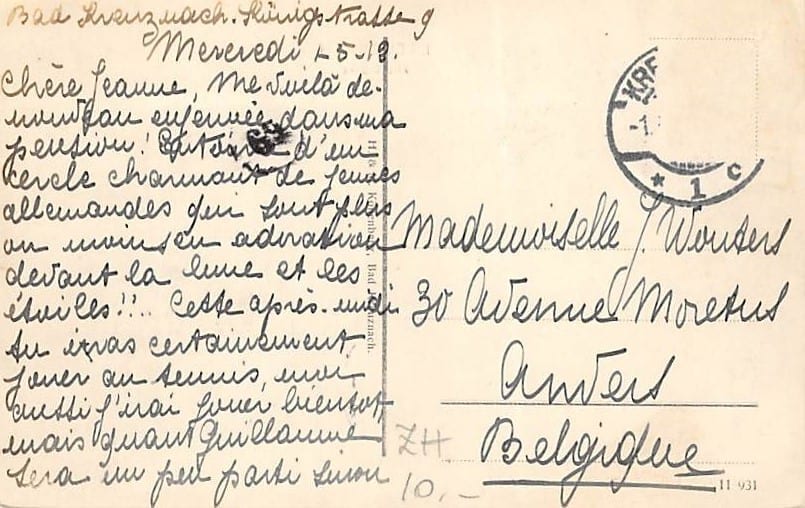 Bad Kreuznach. Königstrasse 9
Mercredi 1-5-12.
Chère Jeanne, Me voilà de-
nouveau enfermée dans ma
pension! Entourée d'un
cercle charmant de jeunes
allemandes qui sont plus
ou moins en adoration
devant la lune et les
étoiles!!.. Cette après-midi
tu iras certainement
jouer au tennis, moi
aussi j'irai jouer bientôt,
mais quant Guillaume
sera un peu parti sinon
Mademoiselle J. Wouters
30 Avenue Moretus
Anvers
Belgique
ZH.
10,-
11 931
Bad Kreuznach.
KRE
-1.
* 1 c